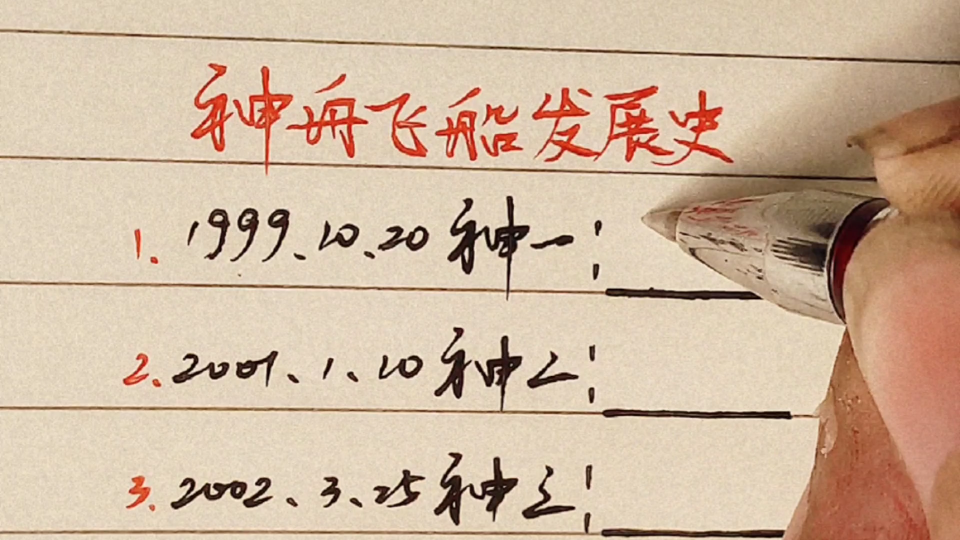 神舟飞船发展史
1. 1999.10.20 神一:
2. 2001.1.10 神二:
3. 2002.3.25 神三: